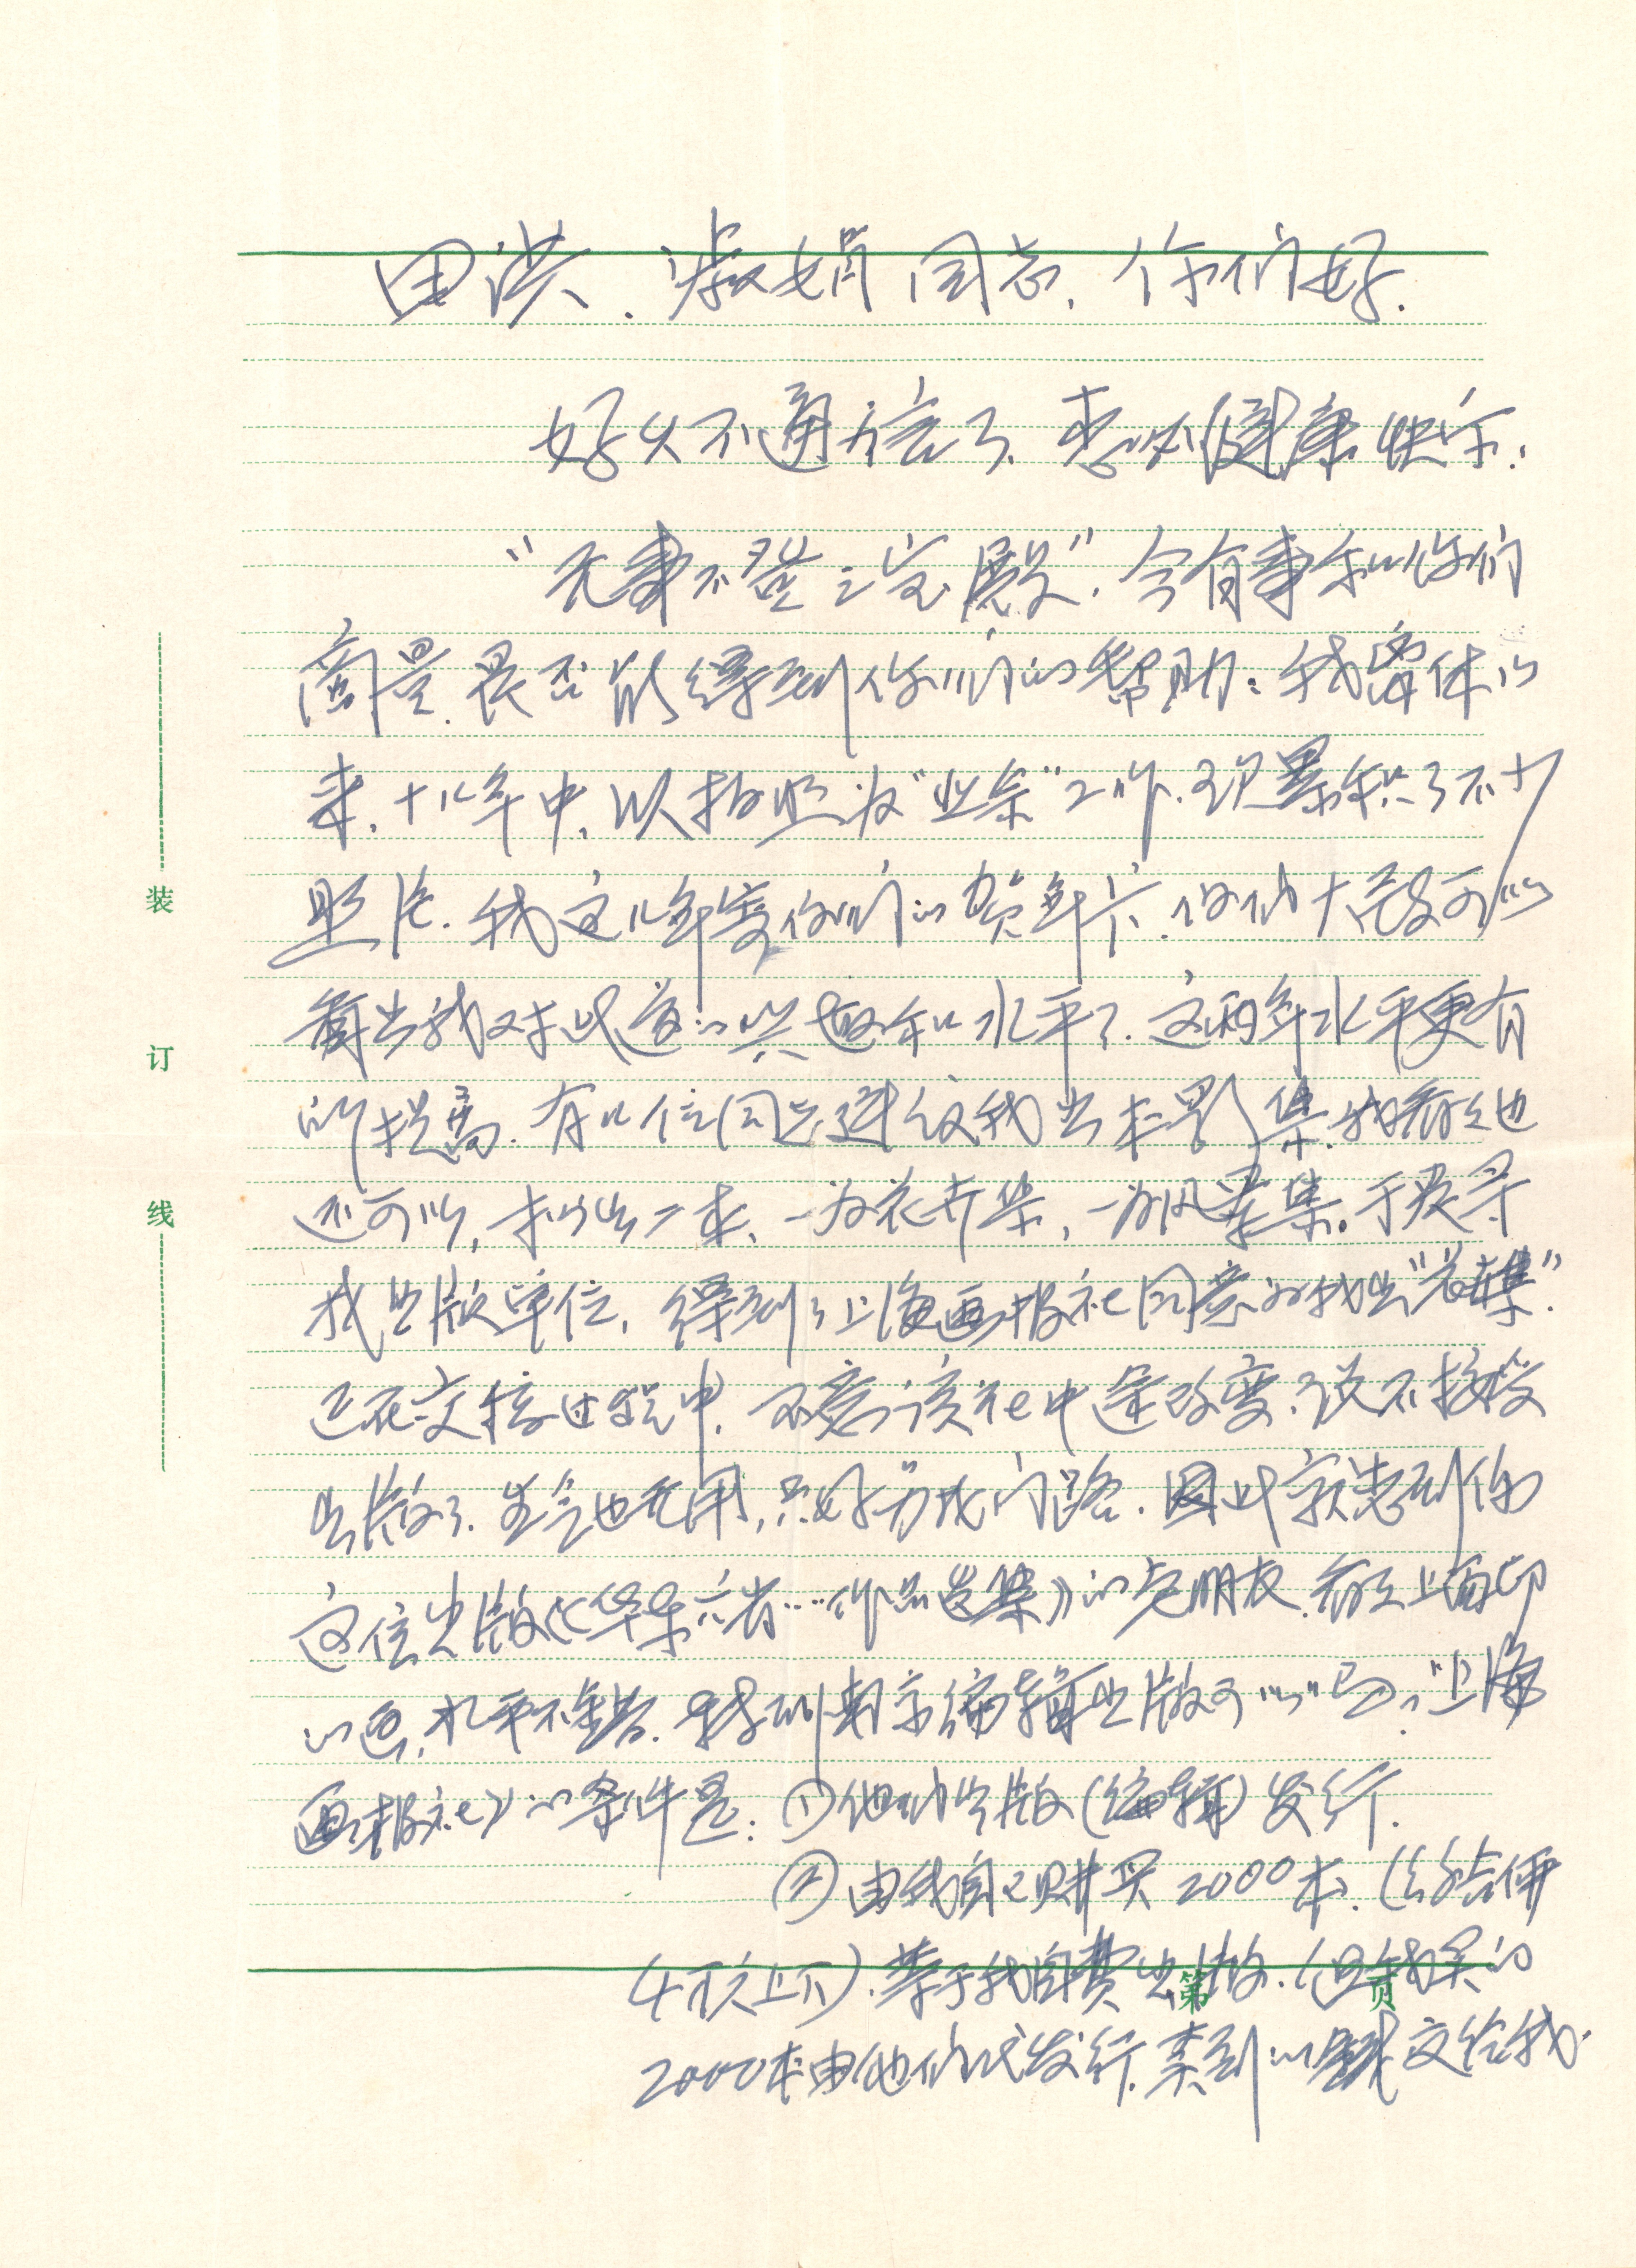 田洪、淑娟同志,你们好.
好久不通音信了,想必健康快乐.
“无事不登三宝殿”.今有事和你们
商量,是否能得到你们的帮助:我离休以
来,十几年中,以拍照为“业余”工作,已累积了不少
照片.我这几年寄你们的贺年片,你们大致可以
看出我对此道的兴趣和水平了.这两年水平更有
所提高.有几位同志建议我出本影集,我看看也
还可以,拟出二本,一为花卉集,一为风景集。于是寻
找出版单位,得到了上海画报社同意为我出“花卉集”.
正在交接过程中,不意该社中途改变,说不接受
出版了.生气也无用,只好另找门路.因此就想到你
这位出版《华东六省……作品选集》的老朋友.看了上面印
的画,水平不错.拿到南京编辑出版可以吗?“上海
画报社”的条件是:①他们出版(编辑)发行.
②由我自己购买2000本.(估价
4万元上下).等于我自费出版.但我买的
2000本由他们代发行.卖到的钱交给我.
装
订
线
第 页